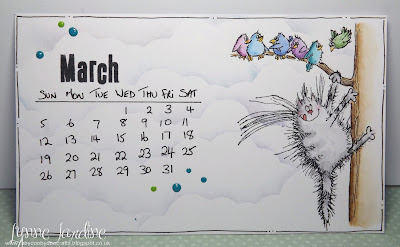 March
SUN MON TUE WED THU FRI SAT
1 2 3 4
5 6 7 8 9 10 11
12 13 14 15 16 17 18
19 20 21 22 23 24 25
26 27 28 29 30 31
Lynne Jardine